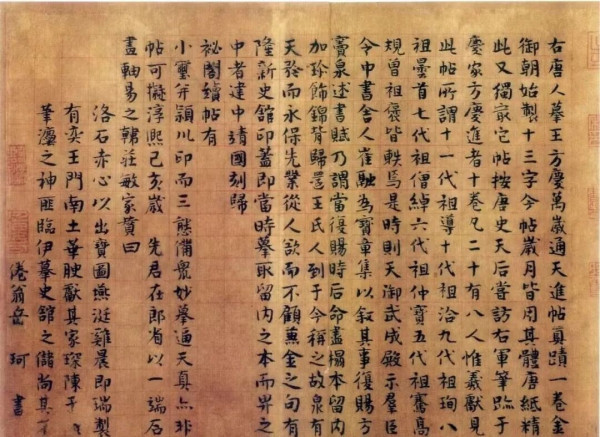 右唐人摹王方慶萬歲通天進帖真蹟一卷金
御朝始製十三字今帖歲月皆用其體唐紙精
此又獨最它帖按唐史天后嘗訪右軍筆蹟于
慶家方慶進者十卷凡二十有八人惟羲獻見
此帖所謂十一代祖導十代祖洽九代祖珣八
祖曇首七代祖僧綽六代祖仲寶五代祖騫高
規曾祖褒皆軼焉是時則天御武成殿示羣臣
令中書舍人崔融為寶章集以敘其事復賜方
竇泉述書賦乃謂當復賜時后命盡榻本留内
加珍飾錦背歸還王氏人到于今稱之故泉有
天發而永保先業從人欲而不顧兼金之句有
隆新史館印蓋即當時摹取留内之本而畀之
中者建中靖國刻歸
祕閣續帖有
小璽并潁川印而三態備衆妙摹逼天真亦非
帖可擬淳熙己亥歲 先君在郎省以一端石
畫軸易之韓莊敏家贊曰
洛石赤心以出寶圖燕涎雞晨即瑞製
有奕王門南土華腴獻其家琛陳于
筆瀍之神匪臨伊摹史館之儲尚其
倦翁岳 珂 書